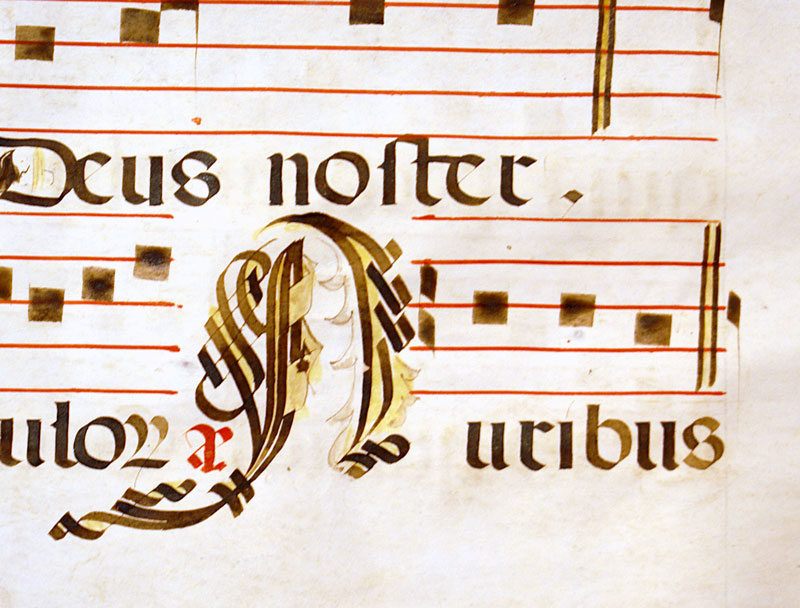 Deus noster.
uloꝝ Auribus